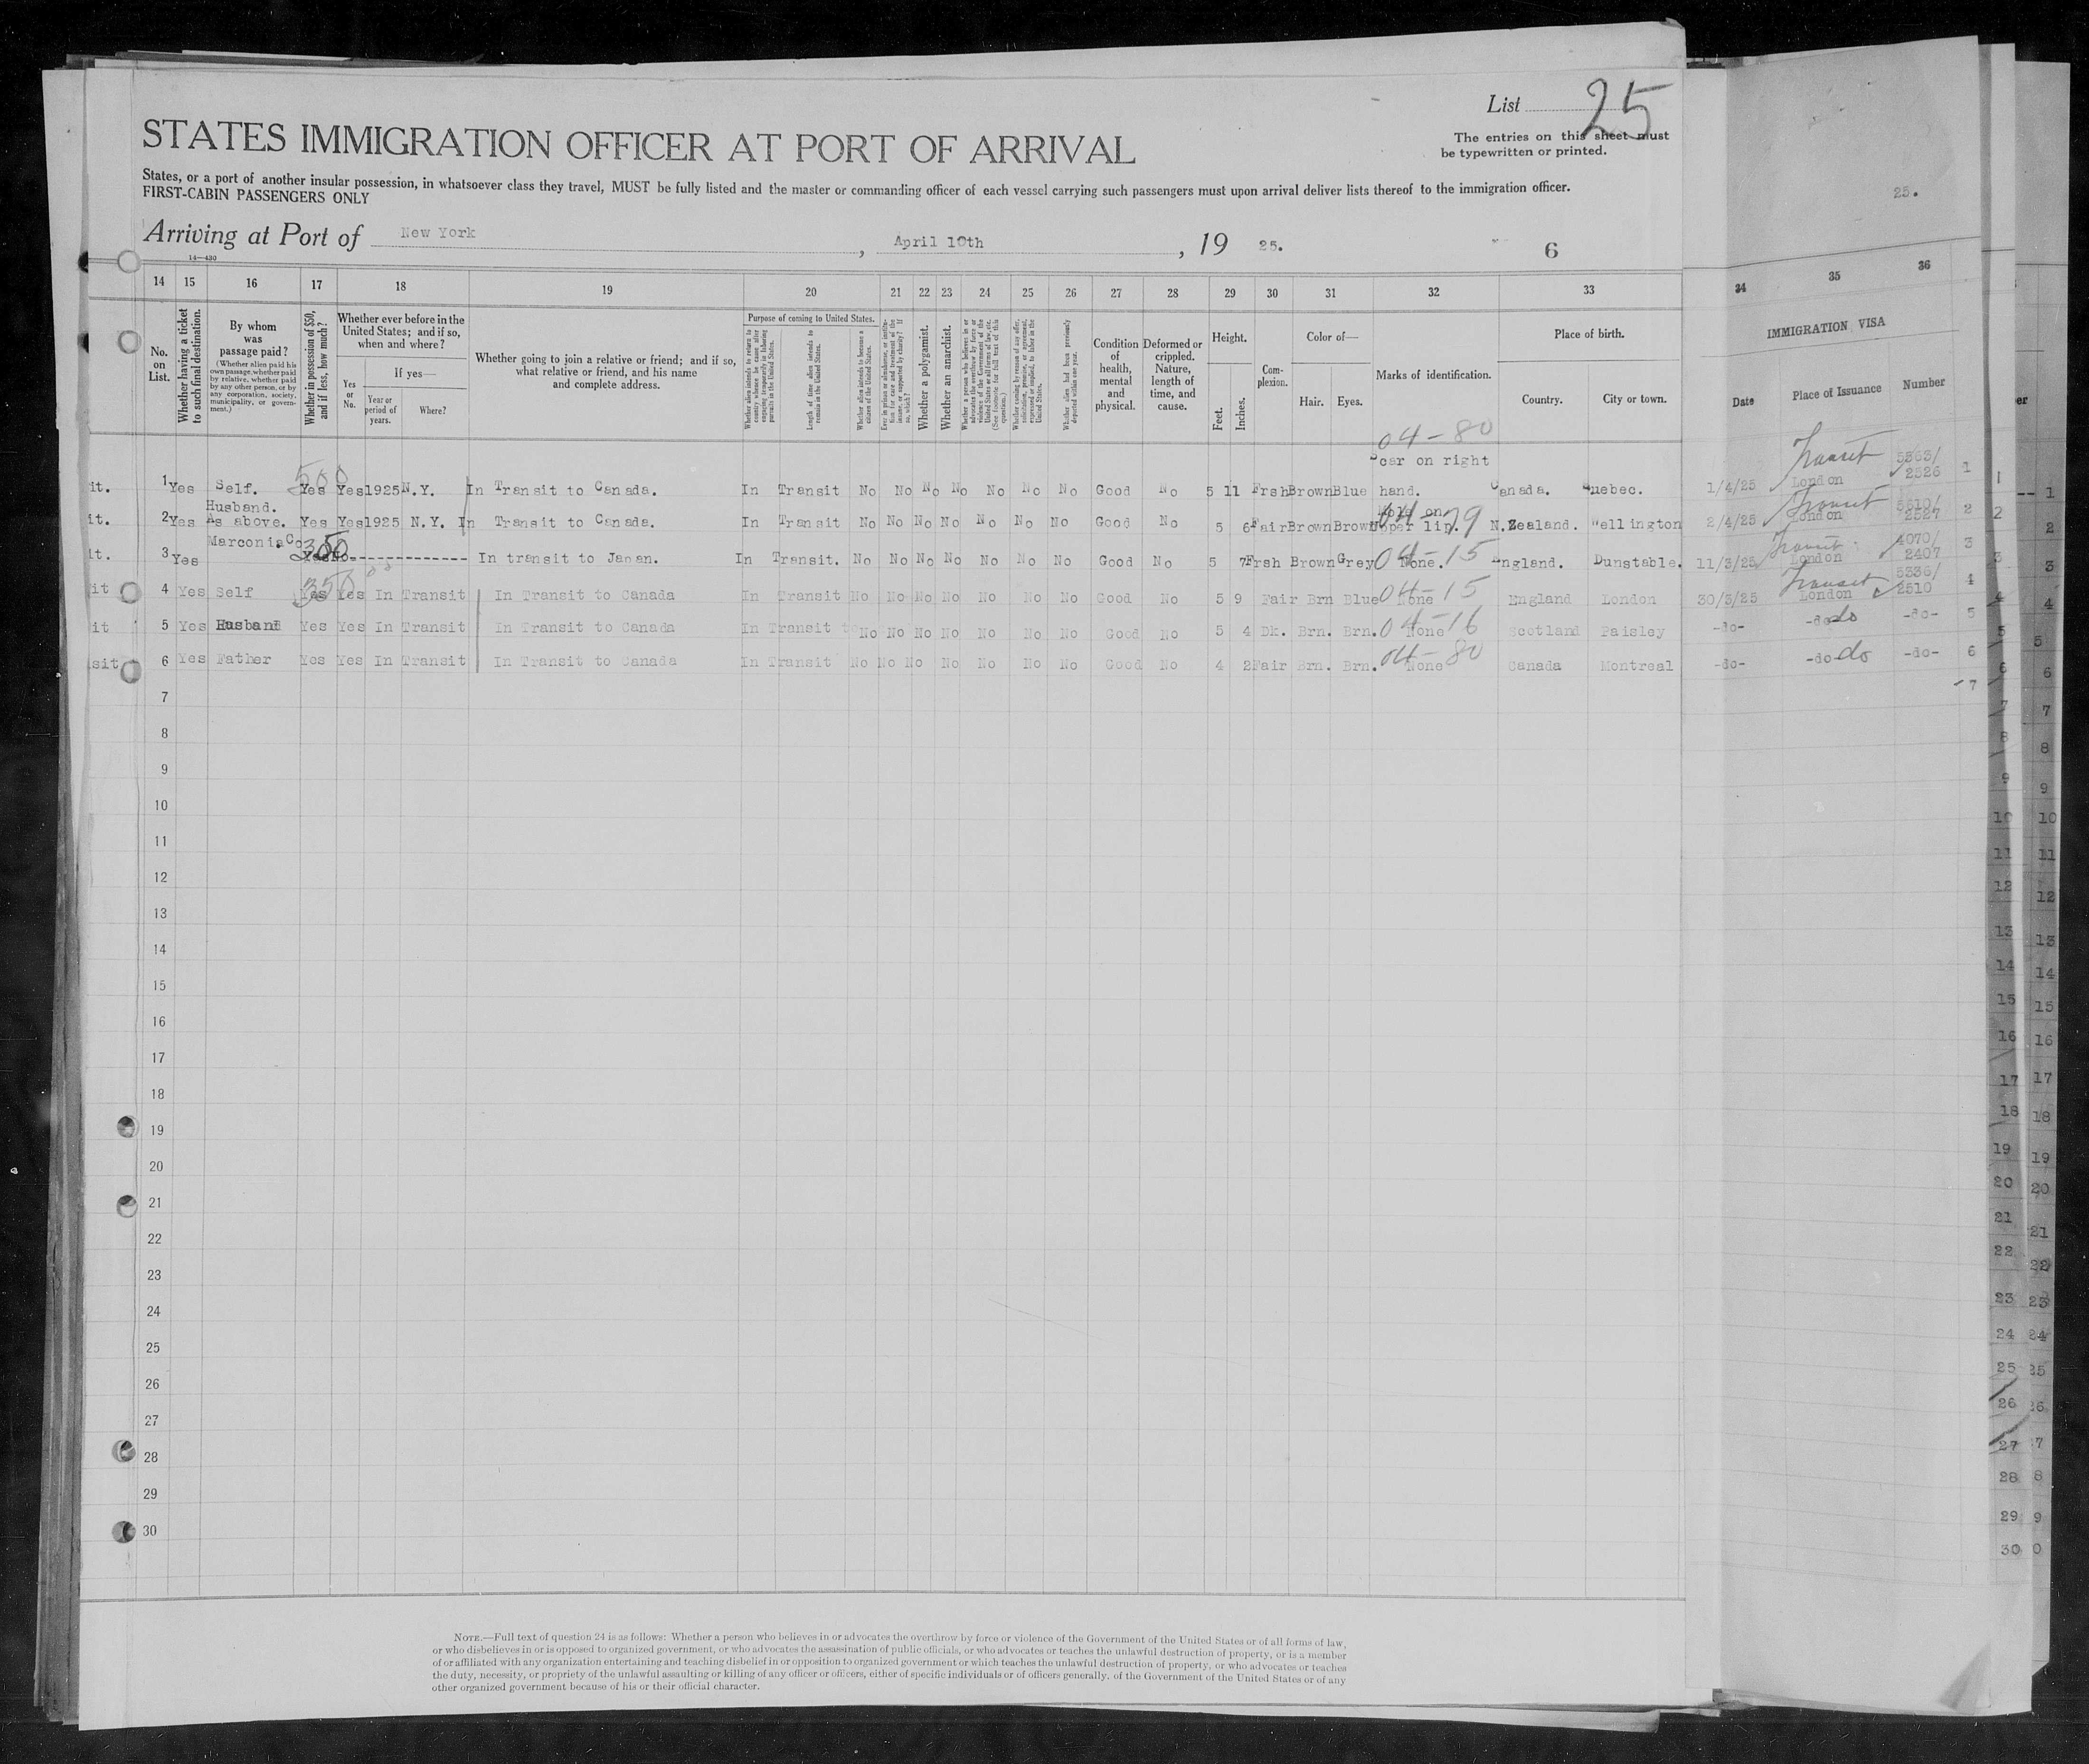 List 25
STATES IMMIGRATION OFFICER AT PORT OF ARRIVAL
The entries on this sheet must
be typewritten or printed.
States, or a port of another insular possession, in whatsoever class they travel, MUST be fully listed and the master or commanding officer of each vessel carrying such passengers must upon arrival deliver lists thereof to the immigration officer.
FIRST-CABIN PASSENGERS ONLY
25.
Arriving at Port of New York, April 10th, 19 25. 6
14—430
14 15 16 17 18 19 20 21 22 23 24 25 26 27 28 29 30 31 32 33 34 35 36
No. on List.
Whether having a ticket to such final destination.
By whom was passage paid?
(Whether alien paid his own passage, whether paid by relative, whether paid by any other person, or by any corporation, society, municipality, or government.)
Whether in possession of $50, and if less, how much?
Whether ever before in the United States; and if so, when and where?
Yes or No.
If yes—
Year or period of years.
Where?
Whether going to join a relative or friend; and if so, what relative or friend, and his name and complete address.
Purpose of coming to United States.
Length of time alien intends to remain in the United States.
Whether alien intends to become a citizen of the United States.
Whether a polygamist.
Whether an anarchist.
Condition of health, mental and physical.
Deformed or crippled. Nature, length of time, and cause.
Height.
Feet.
Inches.
Complexion.
Color of—
Hair.
Eyes.
Marks of identification.
Place of birth.
Country.
City or town.
IMMIGRATION VISA
Date
Place of Issuance
Number
04-80
Scar on right
it. 1 Yes Self. 500 Yes Yes 1925 N.Y. In Transit to Canada. In Transit No No No No No No No Good No 5 11 Frsh Brown Blue hand. Canada. Quebec. 1/4/25 Transit London 5363/2526 1
Husband.
it. 2 Yes As above. Yes Yes 1925 N.Y. In Transit to Canada. In Transit No No No No No No No Good No 5 6 Fair Brown Brown Mole on Upper lip. 04-79 N.Zealand. Wellington 2/4/25 Transit London 2527 2
Marconi Co
it. 3 Yes 350 Yes No-------------- In transit to Japan. In Transit. No No No No No No No Good No 5 7 Frsh Brown Grey None. 04-15 England. Dunstable. 11/3/25 Transit London 4070/2407 3
it 4 Yes Self 350 Yes Yes In Transit In Transit to Canada In Transit No No No No No No No Good No 5 9 Fair Brn Blue None 04-15 England London 30/3/25 Transit London 5336/2510 4
it 5 Yes Husband Yes Yes In Transit In Transit to Canada In Transit No No No No No No No Good No 5 4 Dk. Brn. Brn. None 04-16 Scotland Paisley -do- -do- do -do- 5
sit 6 Yes Father Yes Yes In Transit In Transit to Canada In Transit No No No No No No No Good No 4 2 Fair Brn. Brn. None 04-80 Canada Montreal -do- -do- do -do- 6
7
8
9
10
11
12
13
14
15
16
17
18
19
20
21
22
23
24
25
26
27
28
29
30
NOTE.—Full text of question 24 is as follows: Whether a person who believes in or advocates the overthrow by force or violence of the Government of the United States or of all forms of law,
or who disbelieves in or is opposed to organized government, or who advocates the assassination of public officials, or who advocates or teaches the unlawful destruction of property, or is a member
of or affiliated with any organization entertaining and teaching disbelief in or opposition to organized government or which teaches the unlawful destruction of property, or who advocates or teaches
the duty, necessity, or propriety of the unlawful assaulting or killing of any officer or officers, either of specific individuals or of officers generally, of the Government of the United States or of any
other organized government because of his or their official character.